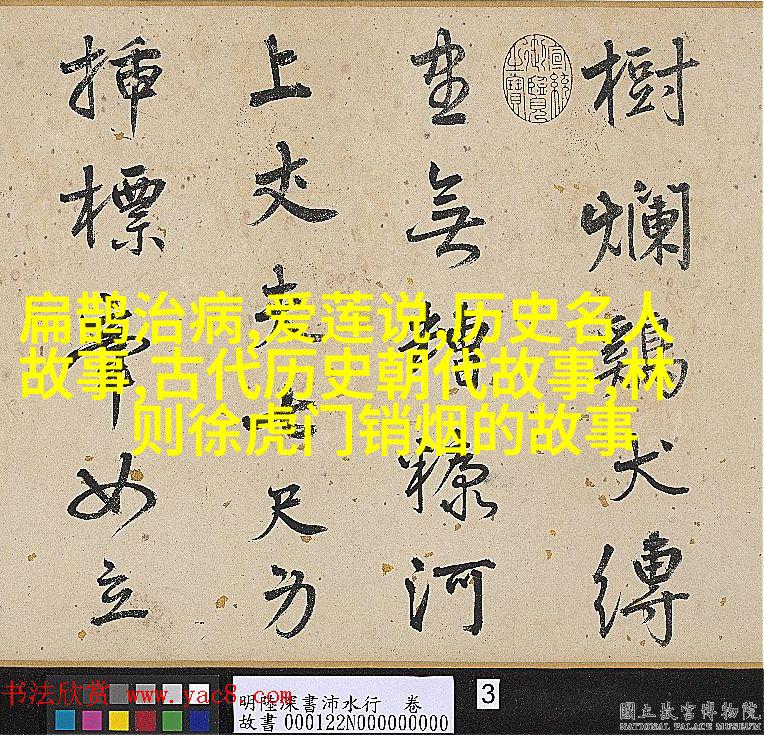 樹爛鷄犬縛
無糠河
上丈夫尺
插標牽女立
扁鹊治病,爱莲说,历史名人
故事,古代历史朝代故事,林
则徐虎门销烟的故事
书法欣赏 www.yac8.com
明陸深書沛水行 卷
故書 000122N000000000
3
國立故宮博物院
NATIONAL PALACE MUSEUM